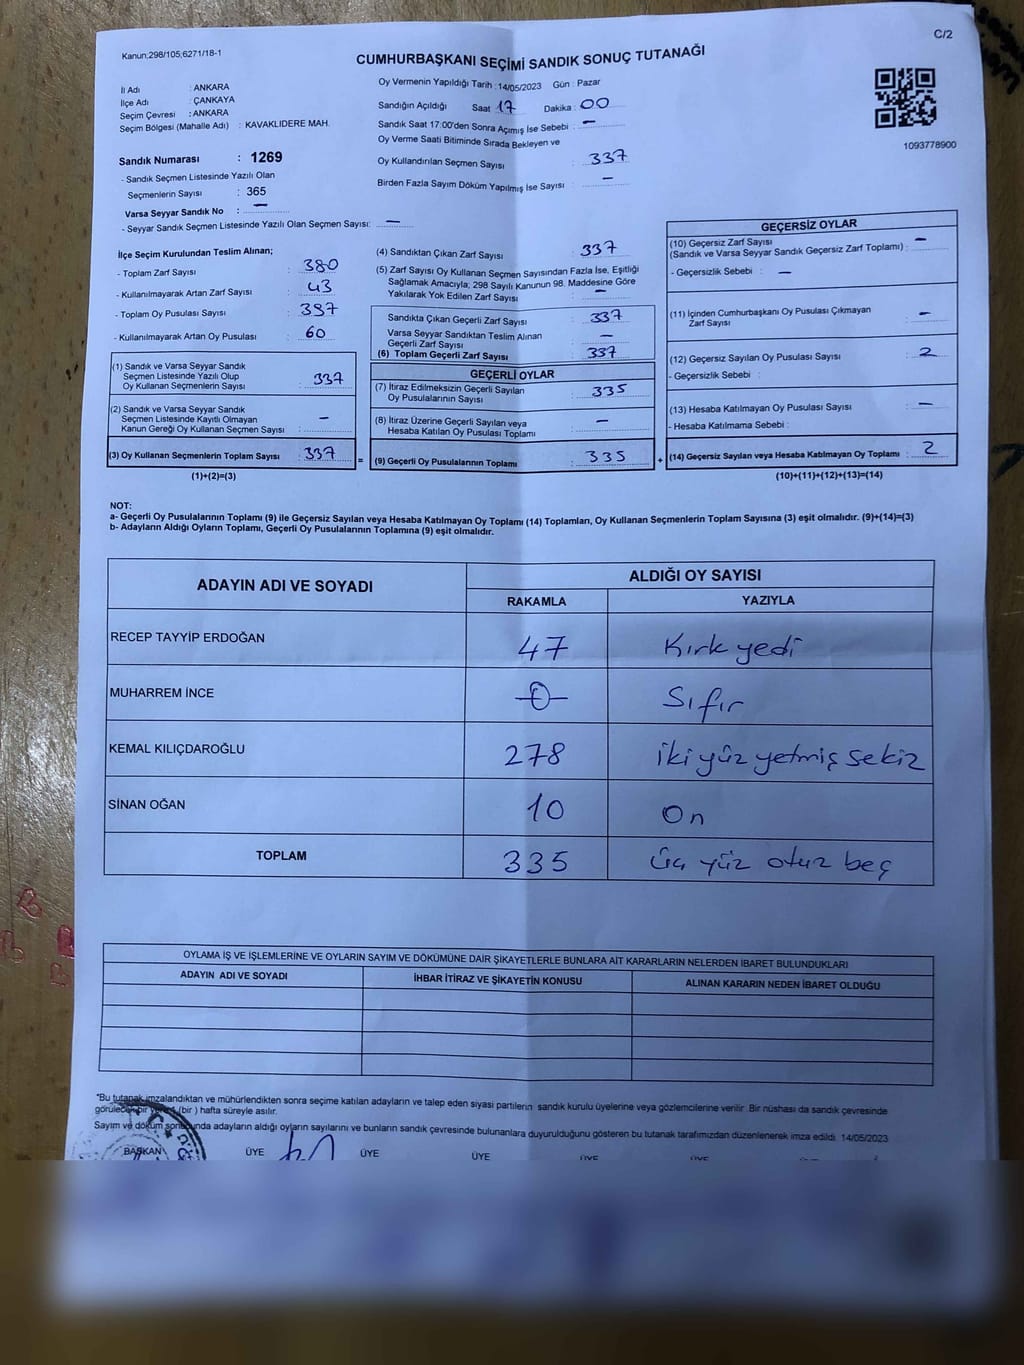 C/2
Kanun:298/105;6271/18-1
CUMHURBAŞKANI SEÇİMİ SANDIK SONUÇ TUTANAĞI
İl Adı : ANKARA
İlçe Adı : ÇANKAYA
Seçim Çevresi : ANKARA
Seçim Bölgesi (Mahalle Adı) : KAVAKLIDERE MAH.
Sandık Numarası : 1269
- Sandık Seçmen Listesinde Yazılı Olan
Seçmenlerin Sayısı : 365
Varsa Seyyar Sandık No : —
- Seyyar Sandık Seçmen Listesinde Yazılı Olan Seçmen Sayısı: —
Oy Vermenin Yapıldığı Tarih :14/05/2023 Gün : Pazar
Sandığın Açıldığı Saat 17 Dakika : 00
Sandık Saat 17:00'den Sonra Açımış İse Sebebi : —
Oy Verme Saati Bitiminde Sırada Bekleyen ve
Oy Kullandırılan Seçmen Sayısı : 337
Birden Fazla Sayım Döküm Yapılmış İse Sayısı : —
1093778900
İlçe Seçim Kurulundan Teslim Alınan;
- Toplam Zarf Sayısı : 380
- Kullanılmayarak Artan Zarf Sayısı : 43
- Toplam Oy Pusulası Sayısı : 397
- Kullanılmayarak Artan Oy Pusulası : 60
(1) Sandık ve Varsa Seyyar Sandık
Seçmen Listesinde Yazılı Olup
Oy Kullanan Seçmenlerin Sayısı : 337
(2) Sandık ve Varsa Seyyar Sandık
Seçmen Listesinde Kayıtlı Olmayan
Kanun Gereği Oy Kullanan Seçmen Sayısı : —
(3) Oy Kullanan Seçmenlerin Toplam Sayısı : 337
(1)+(2)=(3)
(4) Sandıktan Çıkan Zarf Sayısı : 337
(5) Zarf Sayısı Oy Kullanan Seçmen Sayısından Fazla İse, Eşitliği
Sağlamak Amacıyla; 298 Sayılı Kanunun 98. Maddesine Göre
Yakılarak Yok Edilen Zarf Sayısı : —
Sandıkta Çıkan Geçerli Zarf Sayısı : 337
Varsa Seyyar Sandıktan Teslim Alınan
Geçerli Zarf Sayısı : —
(6) Toplam Geçerli Zarf Sayısı : 337
GEÇERLİ OYLAR
(7) İtiraz Edilmeksizin Geçerli Sayılan
Oy Pusulalarının Sayısı : 335
(8) İtiraz Üzerine Geçerli Sayılan veya
Hesaba Katılan Oy Pusulası Toplamı : —
= (9) Geçerli Oy Pusulalarının Toplamı : 335
GEÇERSİZ OYLAR
(10) Geçersiz Zarf Sayısı : —
(Sandık ve Varsa Seyyar Sandık Geçersiz Zarf Toplamı)
- Geçersizlik Sebebi : —
(11) İçinden Cumhurbaşkanı Oy Pusulası Çıkmayan
Zarf Sayısı : —
(12) Geçersiz Sayılan Oy Pusulası Sayısı : 2
- Geçersizlik Sebebi :
(13) Hesaba Katılmayan Oy Pusulası Sayısı : —
- Hesaba Katılmama Sebebi :
+ (14) Geçersiz Sayılan veya Hesaba Katılmayan Oy Toplamı : 2
(10)+(11)+(12)+(13)=(14)
NOT:
a- Geçerli Oy Pusulalarının Toplamı (9) ile Geçersiz Sayılan veya Hesaba Katılmayan Oy Toplamı (14) Toplamları, Oy Kullanan Seçmenlerin Toplam Sayısına (3) eşit olmalıdır. (9)+(14)=(3)
b- Adayların Aldığı Oyların Toplamı, Geçerli Oy Pusulalarının Toplamına (9) eşit olmalıdır.
ADAYIN ADI VE SOYADI ALDIĞI OY SAYISI
RAKAMLA YAZIYLA
RECEP TAYYİP ERDOĞAN 47 Kırk yedi
MUHARREM İNCE -0- Sıfır
KEMAL KILIÇDAROĞLU 278 iki yüz yetmiş sekiz
SİNAN OĞAN 10 On
TOPLAM 335 üç yüz otuz beş
OYLAMA İŞ VE İŞLEMLERİNE VE OYLARIN SAYIM VE DÖKÜMÜNE DAİR ŞİKAYETLERLE BUNLARA AİT KARARLARIN NELERDEN İBARET BULUNDUKLARI
ADAYIN ADI VE SOYADI İHBAR İTİRAZ VE ŞİKAYETİN KONUSU ALINAN KARARIN NEDEN İBARET OLDUĞU
"Bu tutanak imzalandıktan ve mühürlendikten sonra seçime katılan adayların ve talep eden siyasi partilerin sandık kurulu üyelerine veya gözlemcilerine verilir .Bir nüshası da sandık çevresinde
görülecek bir yere (bir ) hafta süreyle asılır.
Sayım ve döküm sonunda adayların aldığı oyların sayılarını ve bunların sandık çevresinde bulunanlara duyurulduğunu gösteren bu tutanak tarafımızdan düzenlenerek imza edildi. 14/05/2023
BAŞKAN ÜYE ÜYE ÜYE ÜYE ÜYE ÜYE